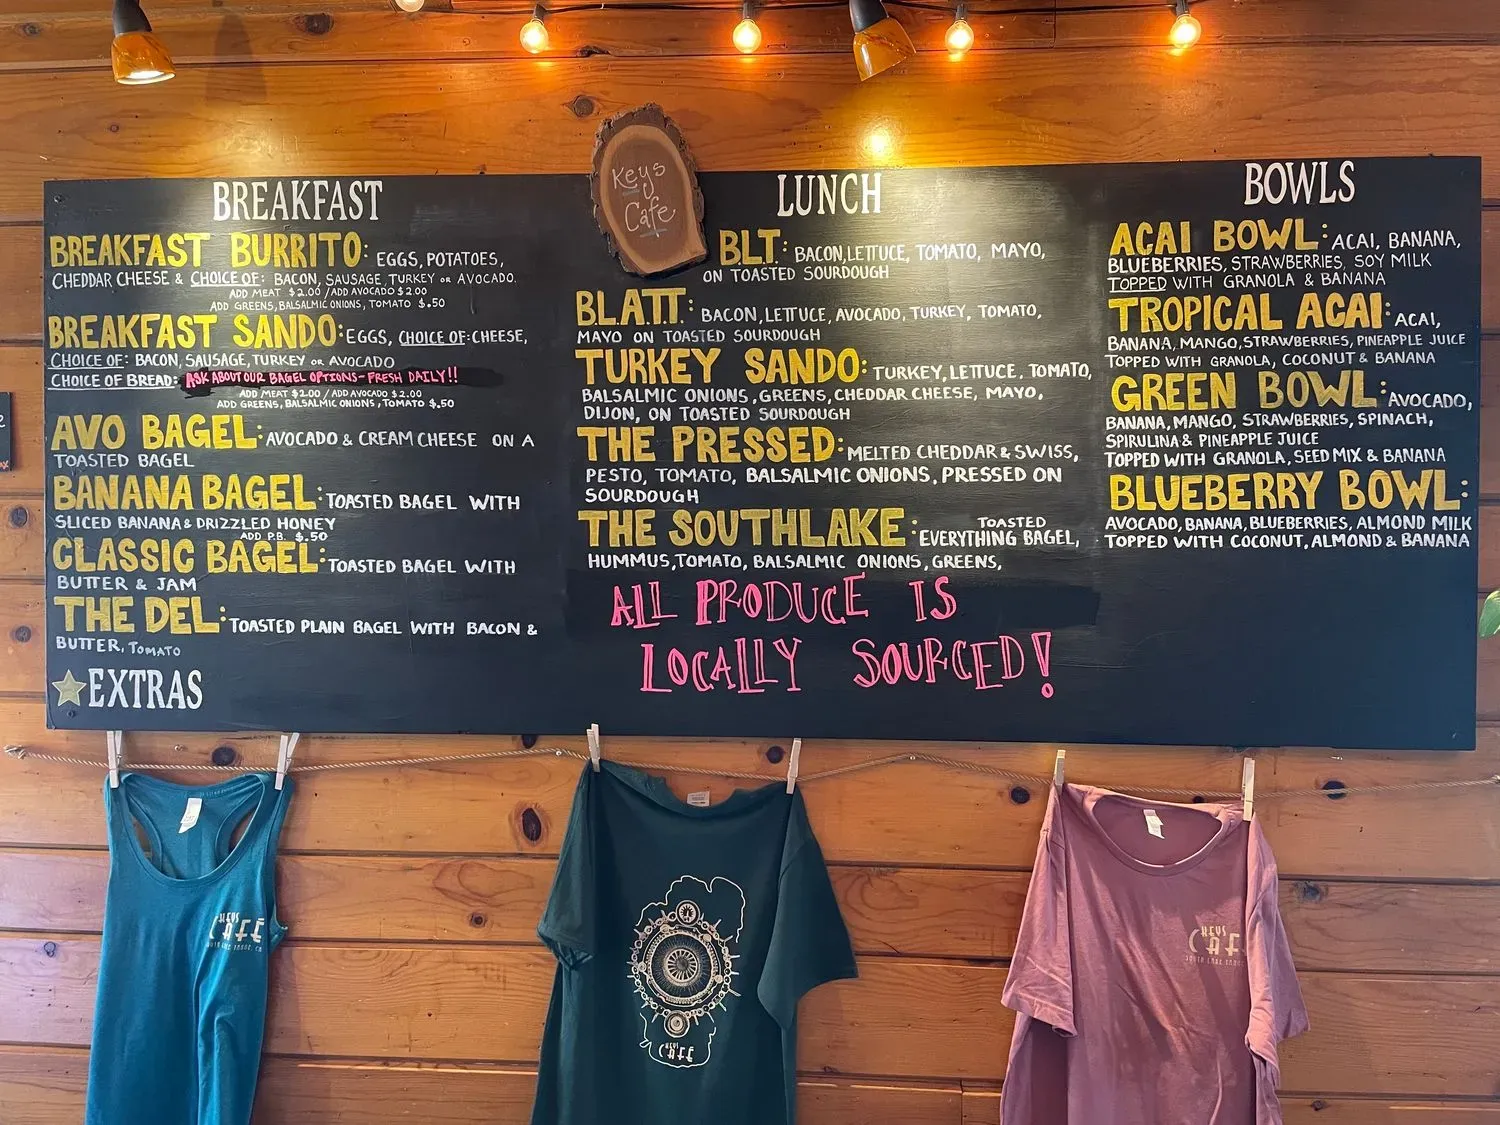 Keys
Cafe
BREAKFAST
BREAKFAST BURRITO: EGGS, POTATOES,
CHEDDAR CHEESE & CHOICE OF: BACON, SAUSAGE, TURKEY OR AVOCADO.
ADD MEAT $2.00 / ADD AVOCADO $2.00
ADD GREENS, BALSALMIC ONIONS, TOMATO $.50
BREAKFAST SANDO: EGGS, CHOICE OF: CHEESE,
CHOICE OF: BACON, SAUSAGE, TURKEY OR AVOCADO
CHOICE OF BREAD: ASK ABOUT OUR BAGEL OPTIONS - FRESH DAILY!!
ADD MEAT $2.00 / ADD AVOCADO $2.00
ADD GREENS, BALSALMIC ONIONS, TOMATO $.50
AVO BAGEL: AVOCADO & CREAM CHEESE ON A
TOASTED BAGEL
BANANA BAGEL: TOASTED BAGEL WITH
SLICED BANANA & DRIZZLED HONEY
ADD P.B. $.50
CLASSIC BAGEL: TOASTED BAGEL WITH
BUTTER & JAM
THE DEL: TOASTED PLAIN BAGEL WITH BACON &
BUTTER, TOMATO
EXTRAS
LUNCH
BLT: BACON, LETTUCE, TOMATO, MAYO,
ON TOASTED SOURDOUGH
B.L.A.T.T: BACON, LETTUCE, AVOCADO, TURKEY, TOMATO,
MAYO ON TOASTED SOURDOUGH
TURKEY SANDO: TURKEY, LETTUCE, TOMATO,
BALSALMIC ONIONS, GREENS, CHEDDAR CHEESE, MAYO,
DIJON, ON TOASTED SOURDOUGH
THE PRESSED: MELTED CHEDDAR & SWISS,
PESTO, TOMATO, BALSALMIC ONIONS, PRESSED ON
SOURDOUGH
THE SOUTHLAKE: TOASTED
EVERYTHING BAGEL,
HUMMUS, TOMATO, BALSALMIC ONIONS, GREENS,
ALL PRODUCE IS
LOCALLY SOURCED!
BOWLS
ACAI BOWL: ACAI, BANANA,
BLUEBERRIES, STRAWBERRIES, SOY MILK
TOPPED WITH GRANOLA & BANANA
TROPICAL ACAI: ACAI,
BANANA, MANGO, STRAWBERRIES, PINEAPPLE JUICE
TOPPED WITH GRANOLA, COCONUT & BANANA
GREEN BOWL: AVOCADO,
BANANA, MANGO, STRAWBERRIES, SPINACH,
SPIRULINA & PINEAPPLE JUICE
TOPPED WITH GRANOLA, SEED MIX & BANANA
BLUEBERRY BOWL:
AVOCADO, BANANA, BLUEBERRIES, ALMOND MILK
TOPPED WITH COCONUT, ALMOND & BANANA
KEYS
CAFÉ
SOUTH LAKE TAHOE, CA
KEYS
CAFÉ
KEYS
CAF
SOUTH LAKE TAHOE